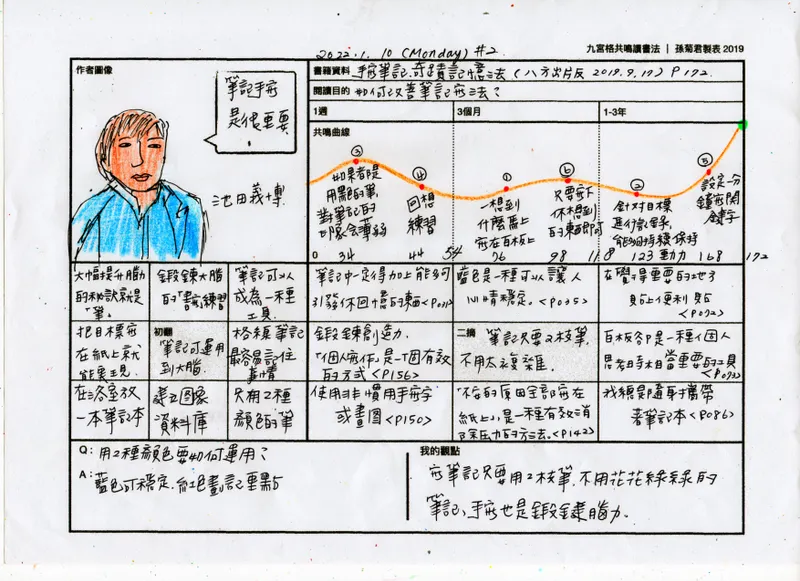 2022.1.10 (Monday) #2
九宮格共鳴讀書法 | 孫菊君製表 2019
作者圖像
筆記手寫
是很重要
池田義博
書籍資料 手寫筆記奇蹟記憶法(八方出版 2019.9.17) P172
閱讀目的 如何改善筆記寫法?
1週 3個月 1-3年
共鳴曲線
③
如果都是
用黑的筆,
對筆記的
印象會薄弱
④
回想
練習
①
一想到
什麼馬上
寫在白板上
⑥
只要寫下
你想到
的東西即可
②
針對目標
進行記錄,
能夠持續保持
動力
⑤
設定一分
鐘寫關
鍵字
0 34 44 54 96 98 118 123 168 172
大幅提升腦
的秘訣就是
「筆」
鍛鍊大腦
的「書寫」練習
筆記可以
成為一種
工具
把目標寫
在紙上就
能實現
初翻
筆記可運用
到大腦
格線筆記
最容易記住
事情
在浴室放
一本筆記本
建立圖象
資料庫
只用2種
顏色的筆
筆記中一定得加上能夠可
引發你回憶的東西
藍色是一種可以讓人
心情穩定。<P035>
在覺得重要的地方
貼上便利貼
<P072>
鍛鍊創造力。
「個人寫作」是一個有效
的方式<P156>
二摘 筆記只要2枝筆
不用太複雜。
白板各印是一種個人
思考時相當重要的工具
使用非慣用手寫字
或畫圖<P150>
「不安的原因全部寫在
紙上」,是一種有效消
除壓力的方法。<P142>
我總是隨身攜帶
著筆記本<P086>
Q: 用2種顏色要如何運用?
A: 藍色可穩定,紅色畫記重點
我的觀點
寫筆記只要用2枝筆,不用花花綠綠的
筆記,手寫也是鍛鍊腦力。